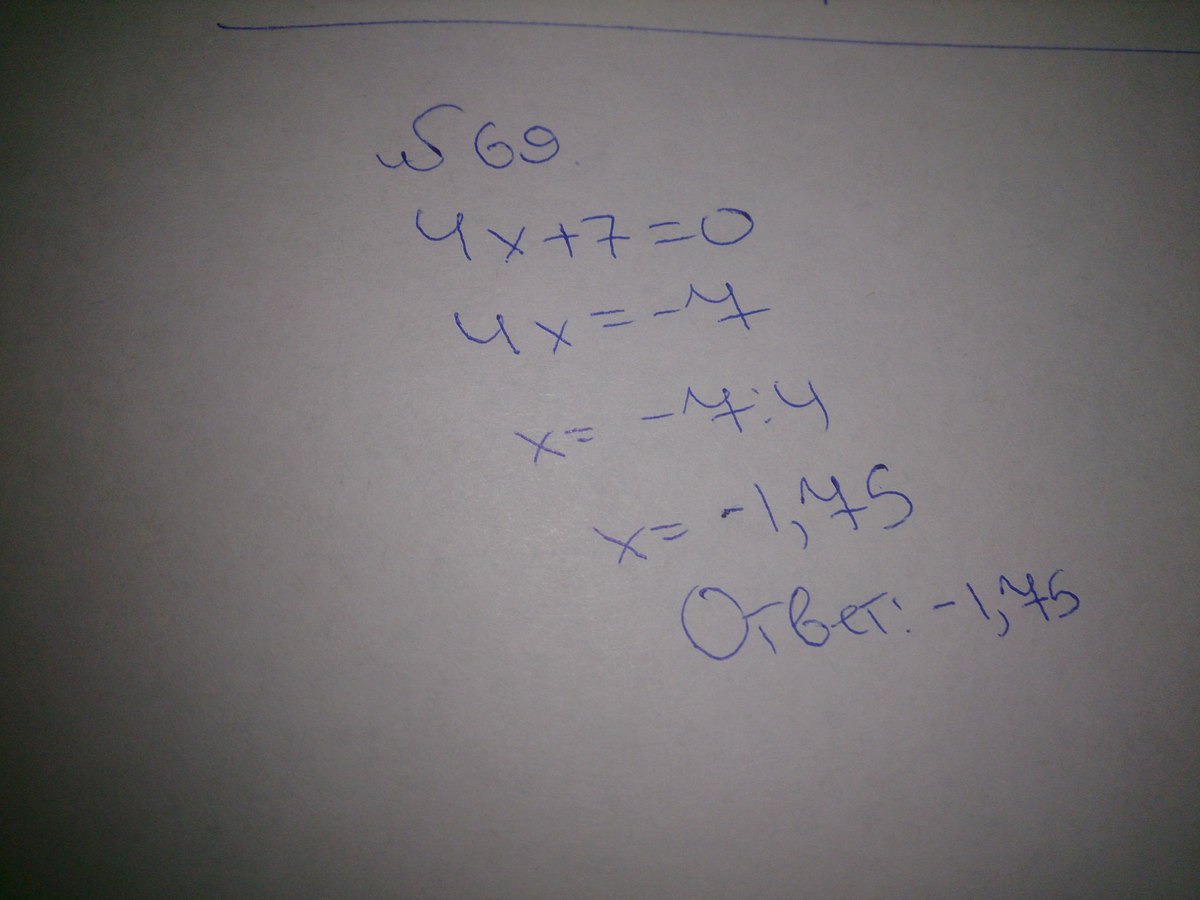 № 69.
4x+7=0
4x=-7
x= -7:4
x= -1,75
Ответ: -1,75